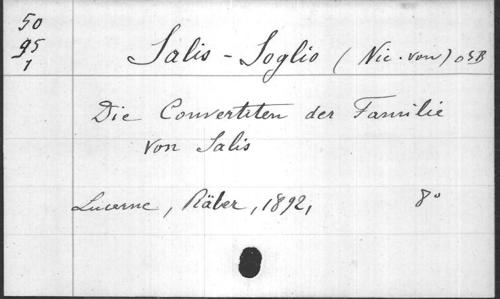 50
95
1
Salis - Soglio (Nic. von) OSB
Die Convertiten der Familie
von Salis
Lucerne, Räber, 1892,
8°